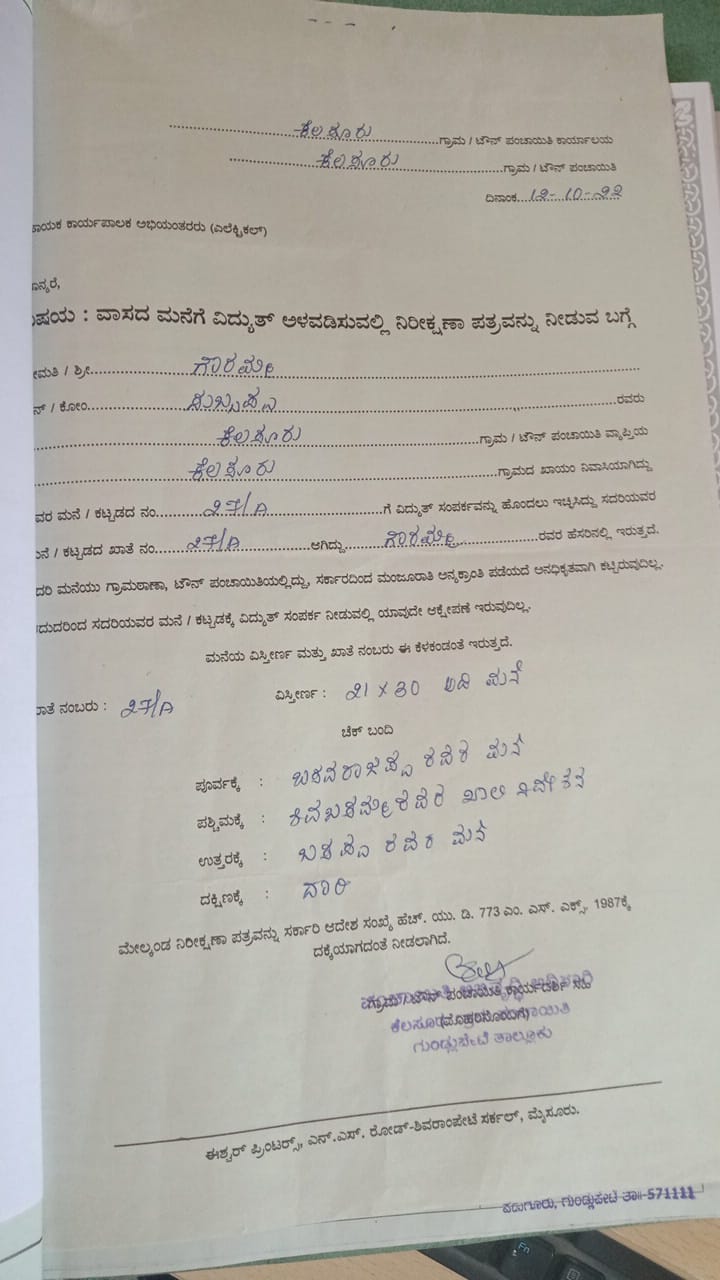 ಕೆಲಸೂರು ಗ್ರಾಮ / ಟೌನ್ ಪಂಚಾಯಿತಿ ಕಾರ್ಯಾಲಯ
ಕೆಲಸೂರು ಗ್ರಾಮ / ಟೌನ್ ಪಂಚಾಯಿತಿ
ದಿನಾಂಕ 12-10-22
ಾಯಕ ಕಾರ್ಯಪಾಲಕ ಅಭಿಯಂತರರು (ಎಲೆಕ್ಟ್ರಿಕಲ್)
ಾನ್ಯರೆ,
ಿಷಯ : ವಾಸದ ಮನೆಗೆ ವಿದ್ಯುತ್ ಅಳವಡಿಸುವಲ್ಲಿ ನಿರೀಕ್ಷಣಾ ಪತ್ರವನ್ನು ನೀಡುವ ಬಗ್ಗೆ
ೀಮತಿ / ಶ್ರೀ ಗೌರಮ್ಮ
ನ್ / ಕೋಂ ಸುಬ್ಬಪ್ಪ ರವರು
ಕೆಲಸೂರು ಗ್ರಾಮ / ಟೌನ್ ಪಂಚಾಯಿತಿ ವ್ಯಾಪ್ತಿಯ
ಕೆಲಸೂರು ಗ್ರಾಮದ ಖಾಯಂ ನಿವಾಸಿಯಾಗಿದ್ದು
ವರ ಮನೆ / ಕಟ್ಟಡದ ನಂ. 27/A ಗೆ ವಿದ್ಯುತ್ ಸಂಪರ್ಕವನ್ನು ಹೊಂದಲು ಇಚ್ಛಿಸಿದ್ದು ಸದರಿಯವರ
ನೆ / ಕಟ್ಟಡದ ಖಾತೆ ನಂ. 27/A ಆಗಿದ್ದು ಗೌರಮ್ಮ ರವರ ಹೆಸರಿನಲ್ಲಿ ಇರುತ್ತದೆ.
ದರಿ ಮನೆಯು ಗ್ರಾಮಠಾಣಾ, ಟೌನ್ ಪಂಚಾಯಿತಿಯಲ್ಲಿದ್ದು, ಸರ್ಕಾರದಿಂದ ಮಂಜೂರಾತಿ ಅನ್ಯಕ್ರಾಂತಿ ಪಡೆಯದೆ ಅನಧಿಕೃತವಾಗಿ ಕಟ್ಟಿರುವುದಿಲ್ಲ.
ದುದರಿಂದ ಸದರಿಯವರ ಮನೆ / ಕಟ್ಟಡಕ್ಕೆ ವಿದ್ಯುತ್ ಸಂಪರ್ಕ ನೀಡುವಲ್ಲಿ ಯಾವುದೇ ಆಕ್ಷೇಪಣೆ ಇರುವುದಿಲ್ಲ.
ಮನೆಯ ವಿಸ್ತೀರ್ಣ ಮತ್ತು ಖಾತೆ ನಂಬರು ಈ ಕೆಳಕಂಡಂತೆ ಇರುತ್ತದೆ.
ಾತೆ ನಂಬರು : 27/A ವಿಸ್ತೀರ್ಣ : 21 x 30 ಅಡಿ ಮನೆ
ಚೆಕ್ ಬಂದಿ
ಪೂರ್ವಕ್ಕೆ : ಬಸವರಾಜಪ್ಪ ರವರ ಮನೆ
ಪಶ್ಚಿಮಕ್ಕೆ : ಶಿವಬಸಮ್ಮರವರ ಖಾಲಿ ನಿವೇಶನ
ಉತ್ತರಕ್ಕೆ : ಬಸಪ್ಪ ರವರ ಮನೆ
ದಕ್ಷಿಣಕ್ಕೆ : ದಾರಿ
ಮೇಲ್ಕಂಡ ನಿರೀಕ್ಷಣಾ ಪತ್ರವನ್ನು ಸರ್ಕಾರಿ ಆದೇಶ ಸಂಖ್ಯೆ ಹೆಚ್. ಯು. ಡಿ. 773 ಎಂ. ಎಸ್. ಎಕ್ಸ್. 1987ಕ್ಕೆ
ದಕ್ಕೆಯಾಗದಂತೆ ನೀಡಲಾಗಿದೆ.
ಗ್ರಾಮ / ಟೌನ್ ಪಂಚಾಯಿತಿ ಕಾರ್ಯದರ್ಶಿ ಸಹಿ
(ಮೊಹರಿನೊಂದಿಗೆ)
ಗುಂಡ್ಲುಪೇಟೆ ತಾಲ್ಲೂಕು
ಈಶ್ವರ್ ಪ್ರಿಂಟರ್ಸ್, ಎನ್.ಎಸ್. ರೋಡ್-ಶಿವರಾಂಪೇಟೆ ಸರ್ಕಲ್, ಮೈಸೂರು.
ಪಡುಗೂರು, ಗುಂಡ್ಲುಪೇಟೆ ತಾ॥ 571111